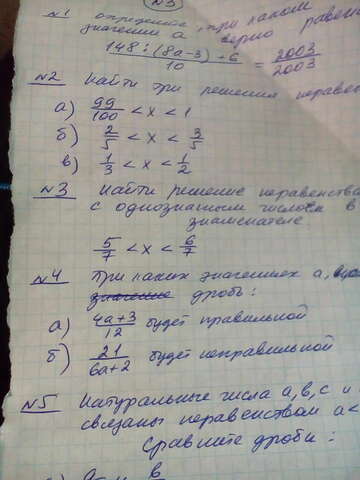 №3
№1 определите, при каком
значении a верно равен
148:(8a-3)+6/10 = 2003/2003
№2 Найти три решения неравен
а) 99/100 < x < 1
б) 2/5 < x < 3/5
в) 1/3 < x < 1/2
№3 Найти решение неравенства
с однозначным числом в
знаменателе.
5/7 < x < 6/7
№4 При каких значениях а,
значение дробь:
а) 4a+3/12 будет правильной
б) 21/6a+2 будет неправильной
№5 Натуральные числа a, b, c и
связаны неравенством a<
Сравните дроби: